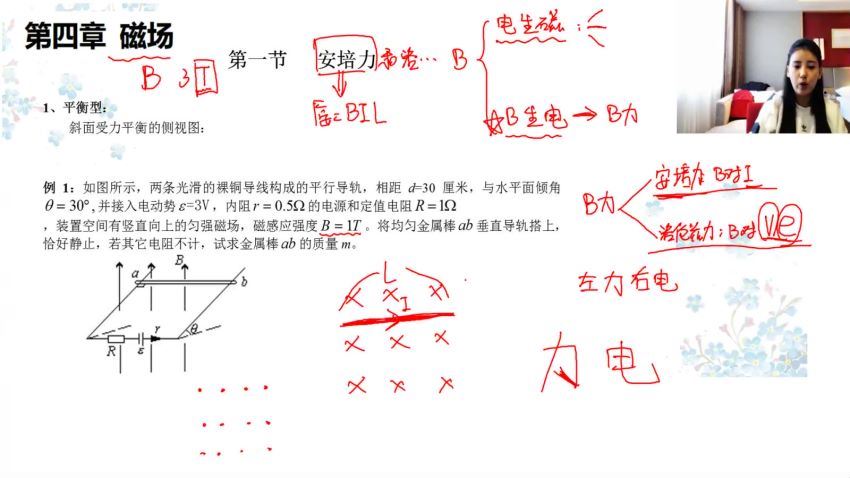 第四章 磁场
B 3 T
第一节 安培力
F安=BIL
B
电生磁:
☆B生电→B力
1、平衡型:
斜面受力平衡的侧视图:
例 1:如图所示,两条光滑的裸铜导线构成的平行导轨,相距 d=30 厘米,与水平面倾角
θ=30°,并接入电动势ε=3V,内阻r=0.5Ω的电源和定值电阻R=1Ω
,装置空间有竖直向上的匀强磁场,磁感应强度B=1T。将均匀金属棒ab垂直导轨搭上,
恰好静止,若其它电阻不计,试求金属棒ab的质量m。
B力
安培力:B对I
洛伦兹力:B对(V)e
左力右电
力 电
a B b
R ε r θ
L
× × ×
I
× × ×
× × ×